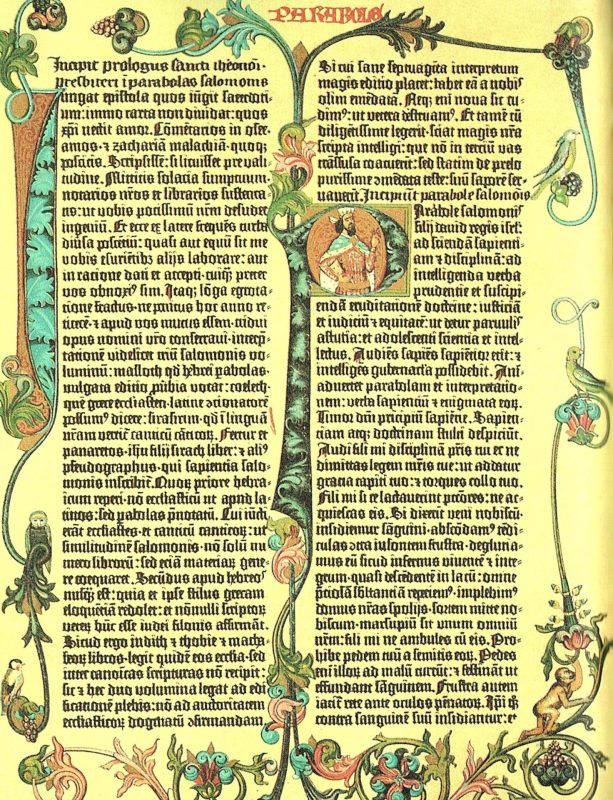 PARABOLE
Incipit prologus sancti iheronimi
presbiteri i parabolas salomonis
Iungat epistola quos iũgit sacerdoti-
um: immo carta non dividat: quos
xp̄i nectit amor. Cõmẽtarios in osee.
amos. et zachariã malachiã. quoq;
poscitis. Scripsissẽ: si licuisset pre vali-
tudine. Mittitis solacia sumptuum.
notarios nr̃os et librarios sustenta-
tis: ut vobis potissimũ nr̃m desudet
ingeniũ. Et ecce ex latere frequẽs turba
diversa poscẽtiũ: quasi aut equũ sit me
vobis esuriẽtibꝫ alijs laborare: aut
in ratione dati et accepti. cuiq̃; preter
vos obnoxiꝰ sim. Itaq; lõga egrota-
tione fractus. ne penitus hoc anno re-
ticerẽ. et apud vos mutus essem. tridui
opus nomini vr̃o consecravi. interp̃-
tationẽ videlicet triũ salomonis vo-
luminũ: masloth qd̃ hebrei p̃abolas.
vulgata editio ꝓverbia vocat: coeleth.
quẽ grece ecclesiastẽ. latine ꝯcionatorẽ
possumꝰ dicere: sirasirim. qd̃ i linguã
nr̃am vertit̃ canticũ cãticoꝝ. Fertur et
panaretos. ihu filij sirach liber: et aliꝰ
pseudographus. qui sapientia salo-
monis inscribit̃. Quoꝝ priorẽ hebra-
icum reperi. nõ ecclesiasticũ ut apud la-
tinos: sed parabolas p̃notatũ. Cui iũcti
erãt ecclesiastes. et canticũ canticoꝝ: ut
similitudinẽ salomonis. nõ solũ nu-
mero librorũ: sed etiã materiaꝝ gene-
re coequaret. Secũdus apud hebreos
nusq̃ est: quia et ipse stilus grecam
eloquẽciã redolet: et nõnulli scriptoꝝ
veteꝝ hũc esse iudei filonis affirmãt.
Sicud ergo iudith et thobie et macha-
beoꝝ libros. legit quidẽ eos ecclesia. sed
inter canoicas scripturas nõ recipit:
sic et hec duo volumina legat ad edi-
ficationẽ plebis: nõ ad auctoritatem
ecclesiasticoꝝ dogmatũ ꝯfirmandam.
Si cui sane septuagĩta interpretum
magis editio placet: habet eã a nobis
olim emẽdatã. Neq; eni nova sic cu-
dimꝰ: ut vetera destruamꝰ. Et tamẽ cũ
diligẽtissime legerit. sciat magis nr̃a
scripta intelligi: que nõ in terciũ vas
trãsfusa coacuerĩt: sed statim de prelo
purissime ꝯmẽdata teste: suũ saporẽ ser-
vaverĩt. Incipiũt parabole salomõis
Parabole salomonis
filij david regis isrl̃:
ad sciendã sapienti-
am et disciplinã: ad
intelligenda verba
prudentie et suscipi-
endã eruditationẽ doctrine: iusticiã
et iudiciũ et equitatẽ: ut detur parvulis
astutia: et adolescenti scientia et intel-
lectus. Audiẽs sapiẽs sapiẽtior erit: et
intelligẽs gubernacl̃a possidebit. Ani-
advertet parabolam et interpretatio-
nem: verba sapientiũ et enigmata eoꝝ.
Timor dñi principiũ sapiẽtie. Sapien-
ciam atq; doctrinam stulti despiciũt.
Audi fili mi disciplinã pr̃is tui et ne
dimittas legem mr̃is tue: ut addatur
gracia capiti tuo: et torques collo tuo.
Fili mi si te lactaverint peccãtores: ne ac-
quiescas eis. Si dixerĩt veni nobiscũ.
insidiemur sãguini. abscõdamꝰ tẽdi-
culas ꝯtra insontem frustra. deglutia-
mus eũ sicud infernus viventẽ et inte-
grum. quasi descẽdentẽ in lacũ: omnẽ
p̃ciosã substanciã reperiemꝰ. implebimꝰ
domus nr̃as spolijs. sortem mitte no-
biscum. marsupiũ sit unum omniũ
nr̃m: fili mi ne ambules cũ eis. Pro-
hibe pedem tuũ a semitis eoꝝ. Pedes
enĩ illoꝝ ad malũ currũt: et festinãt ut
effundant sãguinem. Frustra autem
iacit̃ rete ante oculos pẽnatoꝝ. Ip̃i q̃;
contra sanguinẽ suũ insidiantur: et